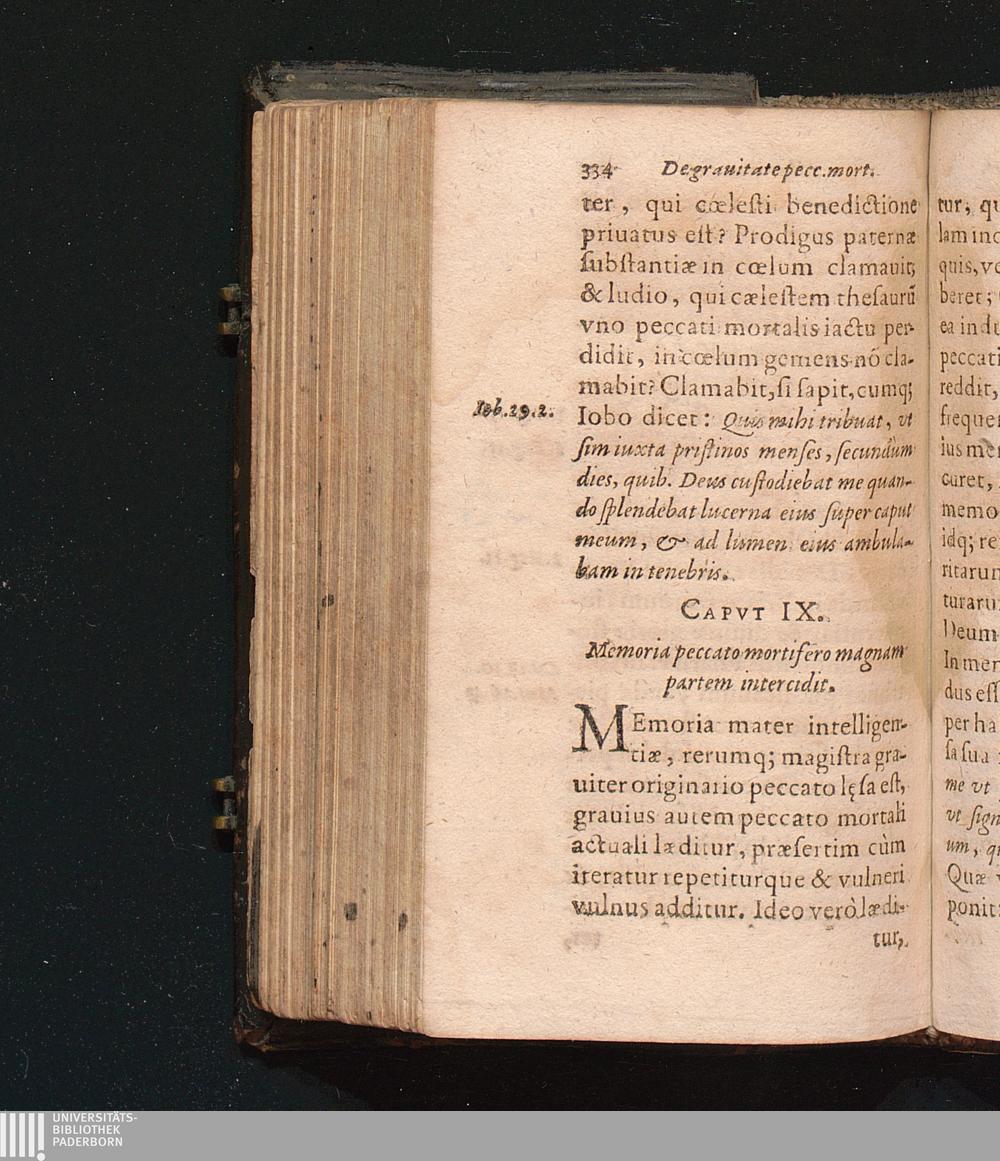 334 De grauitate pecc. mort.
ter, qui cœlesti benedictione
priuatus est? Prodigus paternæ
substantiæ in cœlum clamauit;
& ludio, qui cælestem thesaurū
vno peccati mortalis iactu per-
didit, in cœlum gemens nō cla-
mabit? Clamabit, si sapit, cumq;
Iob. 29. 2.
Iobo dicet: Quis mihi tribuat, vt
sim iuxta pristinos menses, secundum
dies, quib. Deus custodiebat me quan-
do splendebat lucerna eius super caput
meum, & ad lumen eius ambula-
bam in tenebris.
CAPVT IX.
Memoria peccato mortifero magnam
partem intercidit.
MEmoria mater intelligen-
tiæ, rerumq; magistra gra-
uiter originario peccato lęsa est,
grauius autem peccato mortali
actuali læditur, præsertim cùm
iteratur repetiturque & vulneri
vulnus additur. Ideo verò lædi-
tur,
tur, qu
lam inc
quis, ve
beret;
ea indu
peccati
reddit,
frequen
ius me
curet,
memo
idq; re
ritarum
turaru
Deum
In mem
dus ess
per ha
sa sua
me vt
vt sign
um, qu
Quæ v
ponit:
UNIVERSITÄTS-
BIBLIOTHEK
PADERBORN